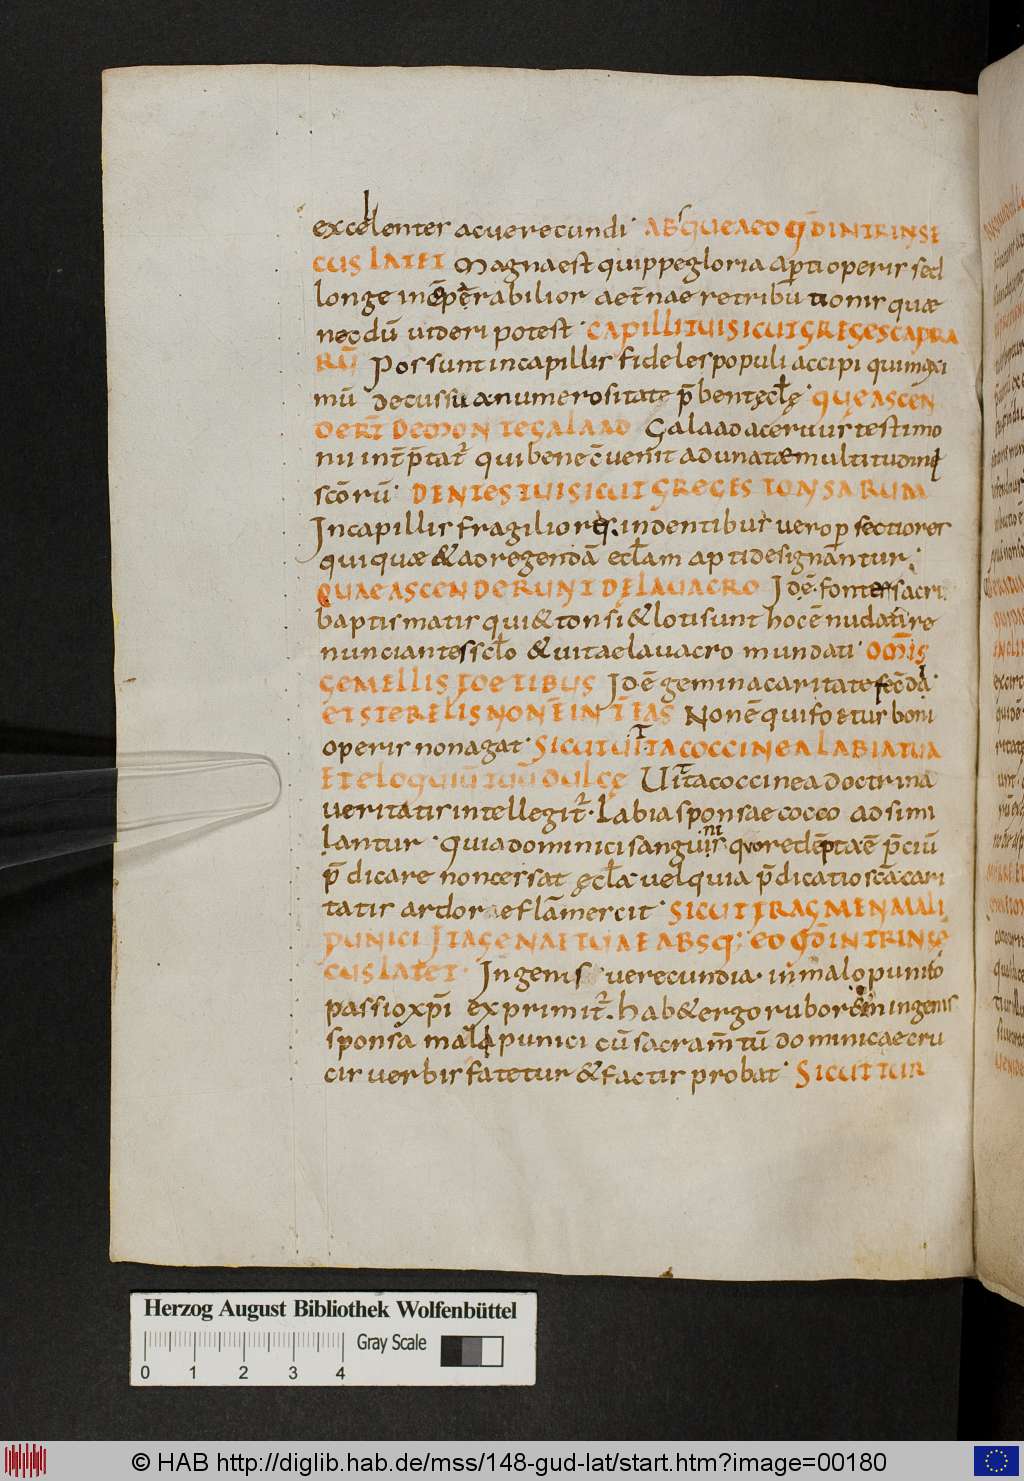 excellenter ac uerecundi· ABSQUE AEO QD̄ INTRINSE
CUS LATET Magna est quippe gloria apti operis sed
longe inc̄perabilior aet̄nae retribūtionis quae
necdū uideri potest· CAPILLI TUI SICUT GREGES CAPRA
RŪ Possunt in capillis fideles populi accipi qui maxi
mū decus suae numerositate p̄bent ęcl̄ę· QUE ASCEN
DERT̄ DE MONTE GALAAD Galaad aceruus testimo
nii int̄p̄tat̄ qui bene c̄uenit adunatae multitudini
scōrū· DENTES TUI SICUT GREGES TONSARUM
In capillis fragiliores: in dentibus uero pfectiores
quiquae & ad regendā ecl̄am apti designantur·
QUAE ASCENDERUNT DE LAUACRO Idē· fonte sacri
baptismatis qui & tonsi & loti sunt hoc ē nudati re
nunciantes scl̄o & uitae lauacro mundati· OM̄IS
GEMELLIS FOETIBUS Idē gemina caritate fecūda·
ET STERELIS NON Ē INT̄ EAS Non ē qui foetus boni
operis non agat· SICUT UITTA COCCINEA LABIA TUA
ET ELOQUIŪ TUŪ DULCĘ Uitta coccinea doctrina
ueritatis intellegit̄· Labia sponsae cocco adsimi
lantur· Quia dominici sanguinis quo redēpta ē p̄ciū
p̄dicare non cessat ęcl̄a· uel quia p̄dicatio scā cari
tatis ardore flāmescit· SICUT FRAGMEN MALI
PUNICI ITA GENAE TUAE ABSQ; EO QD̄ INTRINSĘ
CUS LATET· In genis uerecundia· in malo punico
passio xp̄i exprimit̄· hab& ergo ruborem in genis
sponsa mali punici cū sacram̄tū dominicae cru
cis uerbis fatetur & factis probat· SICUT TUR
Herzog August Bibliothek Wolfenbüttel
Gray Scale
0 1 2 3 4
© HAB http://diglib.hab.de/mss/148-gud-lat/start.htm?image=00180